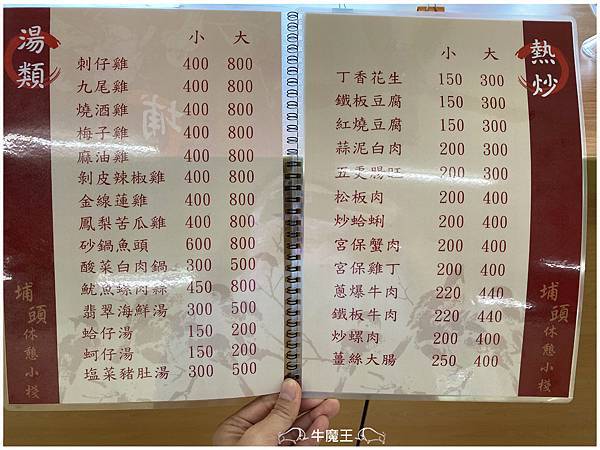 湯類
小 大
刺仔雞 400 800
九尾雞 400 800
燒酒雞 400 800
梅子雞 400 800
麻油雞 400 800
剝皮辣椒雞 400 800
金線蓮雞 400 800
鳳梨苦瓜雞 400 800
砂鍋魚頭 600 800
酸菜白肉鍋 300 500
魷魚螺肉蒜 450 800
翡翠海鮮湯 300 500
蛤仔湯 150 200
蚵仔湯 150 200
塩菜豬肚湯 300 500
埔頭休憩小棧
熱炒
小 大
丁香花生 150 300
鐵板豆腐 150 300
紅燒豆腐 150 300
蒜泥白肉 200 300
五更腸旺 200 300
松板肉 200 400
炒蛤蜊 200 400
宮保蟹肉 200 400
宮保雞丁 200 400
蔥爆牛肉 220 440
鐵板牛肉 220 440
炒螺肉 200 400
薑絲大腸 250 400
埔頭休憩小棧
牛魔王